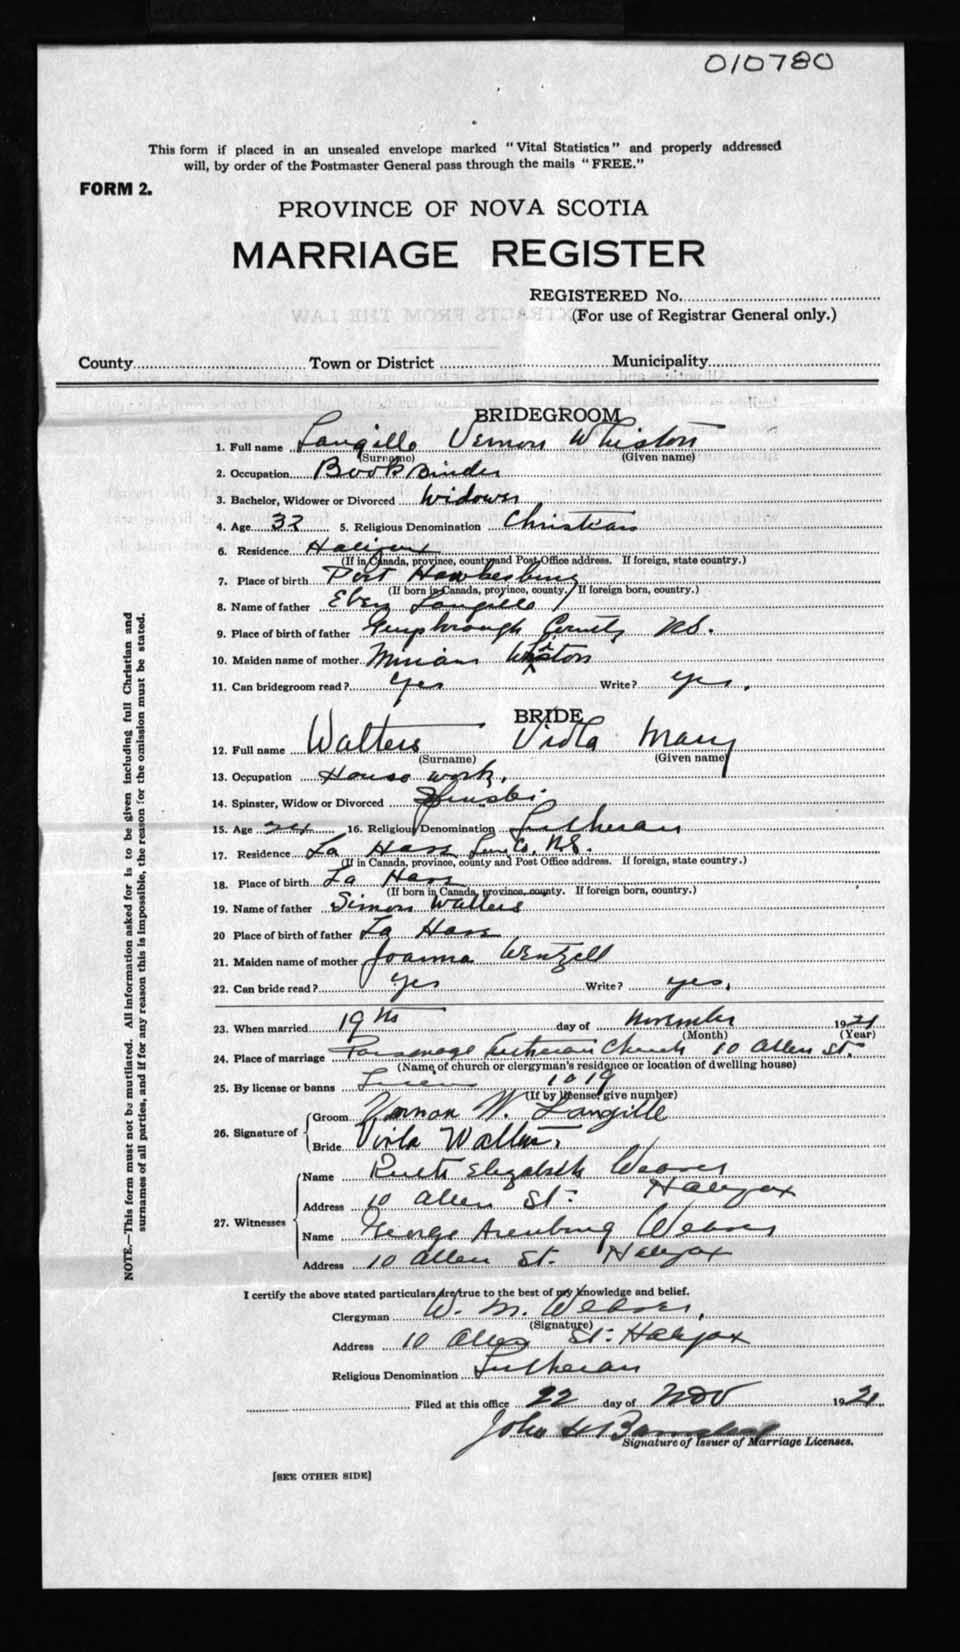 010780
This form if placed in an unsealed envelope marked "Vital Statistics" and properly addressed
will, by order of the Postmaster General pass through the mails "FREE."
FORM 2.
PROVINCE OF NOVA SCOTIA
MARRIAGE REGISTER
REGISTERED No.
(For use of Registrar General only.)
County Town or District Municipality
BRIDEGROOM
1. Full name Langille Vernon Whiston
(Surname) (Given name)
2. Occupation Book Binder
3. Bachelor, Widower or Divorced Widower
4. Age 32 5. Religious Denomination Christian
6. Residence Halifax
(If in Canada, province, county and Post Office address. If foreign, state country.)
7. Place of birth Port Hawkesbury
(If born in Canada, province, county. If foreign born, country.)
8. Name of father Eben Langille
9. Place of birth of father Guysborough County N.S.
10. Maiden name of mother Miriam Whiston
11. Can bridegroom read? Yes Write? Yes.
BRIDE
12. Full name Walters Viola Mary
(Surname) (Given name)
13. Occupation House work.
14. Spinster, Widow or Divorced Spinster
15. Age 24 16. Religious Denomination Lutheran
17. Residence La Have Lun Co. N.S.
(If in Canada, province, county and Post Office address. If foreign, state country.)
18. Place of birth La Have
(If born in Canada, province, county. If foreign born, country.)
19. Name of father Simon Walters
20 Place of birth of father La Have
21. Maiden name of mother Joanna Wentzell
22. Can bride read? Yes Write? yes.
23. When married 19th day of November 1921
(Month) (Year)
24. Place of marriage Parsonage Lutheran Church 10 Allen St.
(Name of church or clergyman's residence or location of dwelling house)
25. By license or banns License 1019
(If by license, give number)
26. Signature of Groom Vernon W. Langille
Bride Viola Walters.
27. Witnesses Name Ruth Elizabeth Weaver
Address 10 Allen St. Halifax
Name George Arenburg Weaver
Address 10 Allen St. Halifax
I certify the above stated particulars are true to the best of my knowledge and belief.
Clergyman W. M. Weaver.
(Signature)
Address 10 Allen St. Halifax
Religious Denomination Lutheran
Filed at this office 22 day of Nov 1921
John H
Signature of Issuer of Marriage Licenses.
[SEE OTHER SIDE]
NOTE.—This form must not be mutilated. All information asked for is to be given including full Christian and
surnames of all parties, and if for any reason this is impossible, the reason for the omission must be stated.